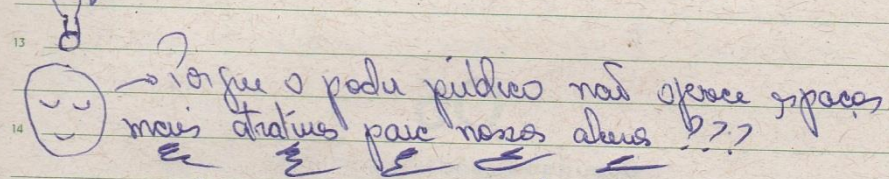 13
→ Porque o poder público não oferece espaços
14
mais atrativos para nossos alunos ???